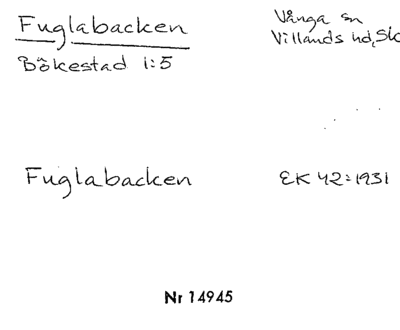 Fuglabacken
Bökestad 1:5
Vånga sn
Villands hd, Sk
Fuglabacken
EK 42:1931
Nr 14945